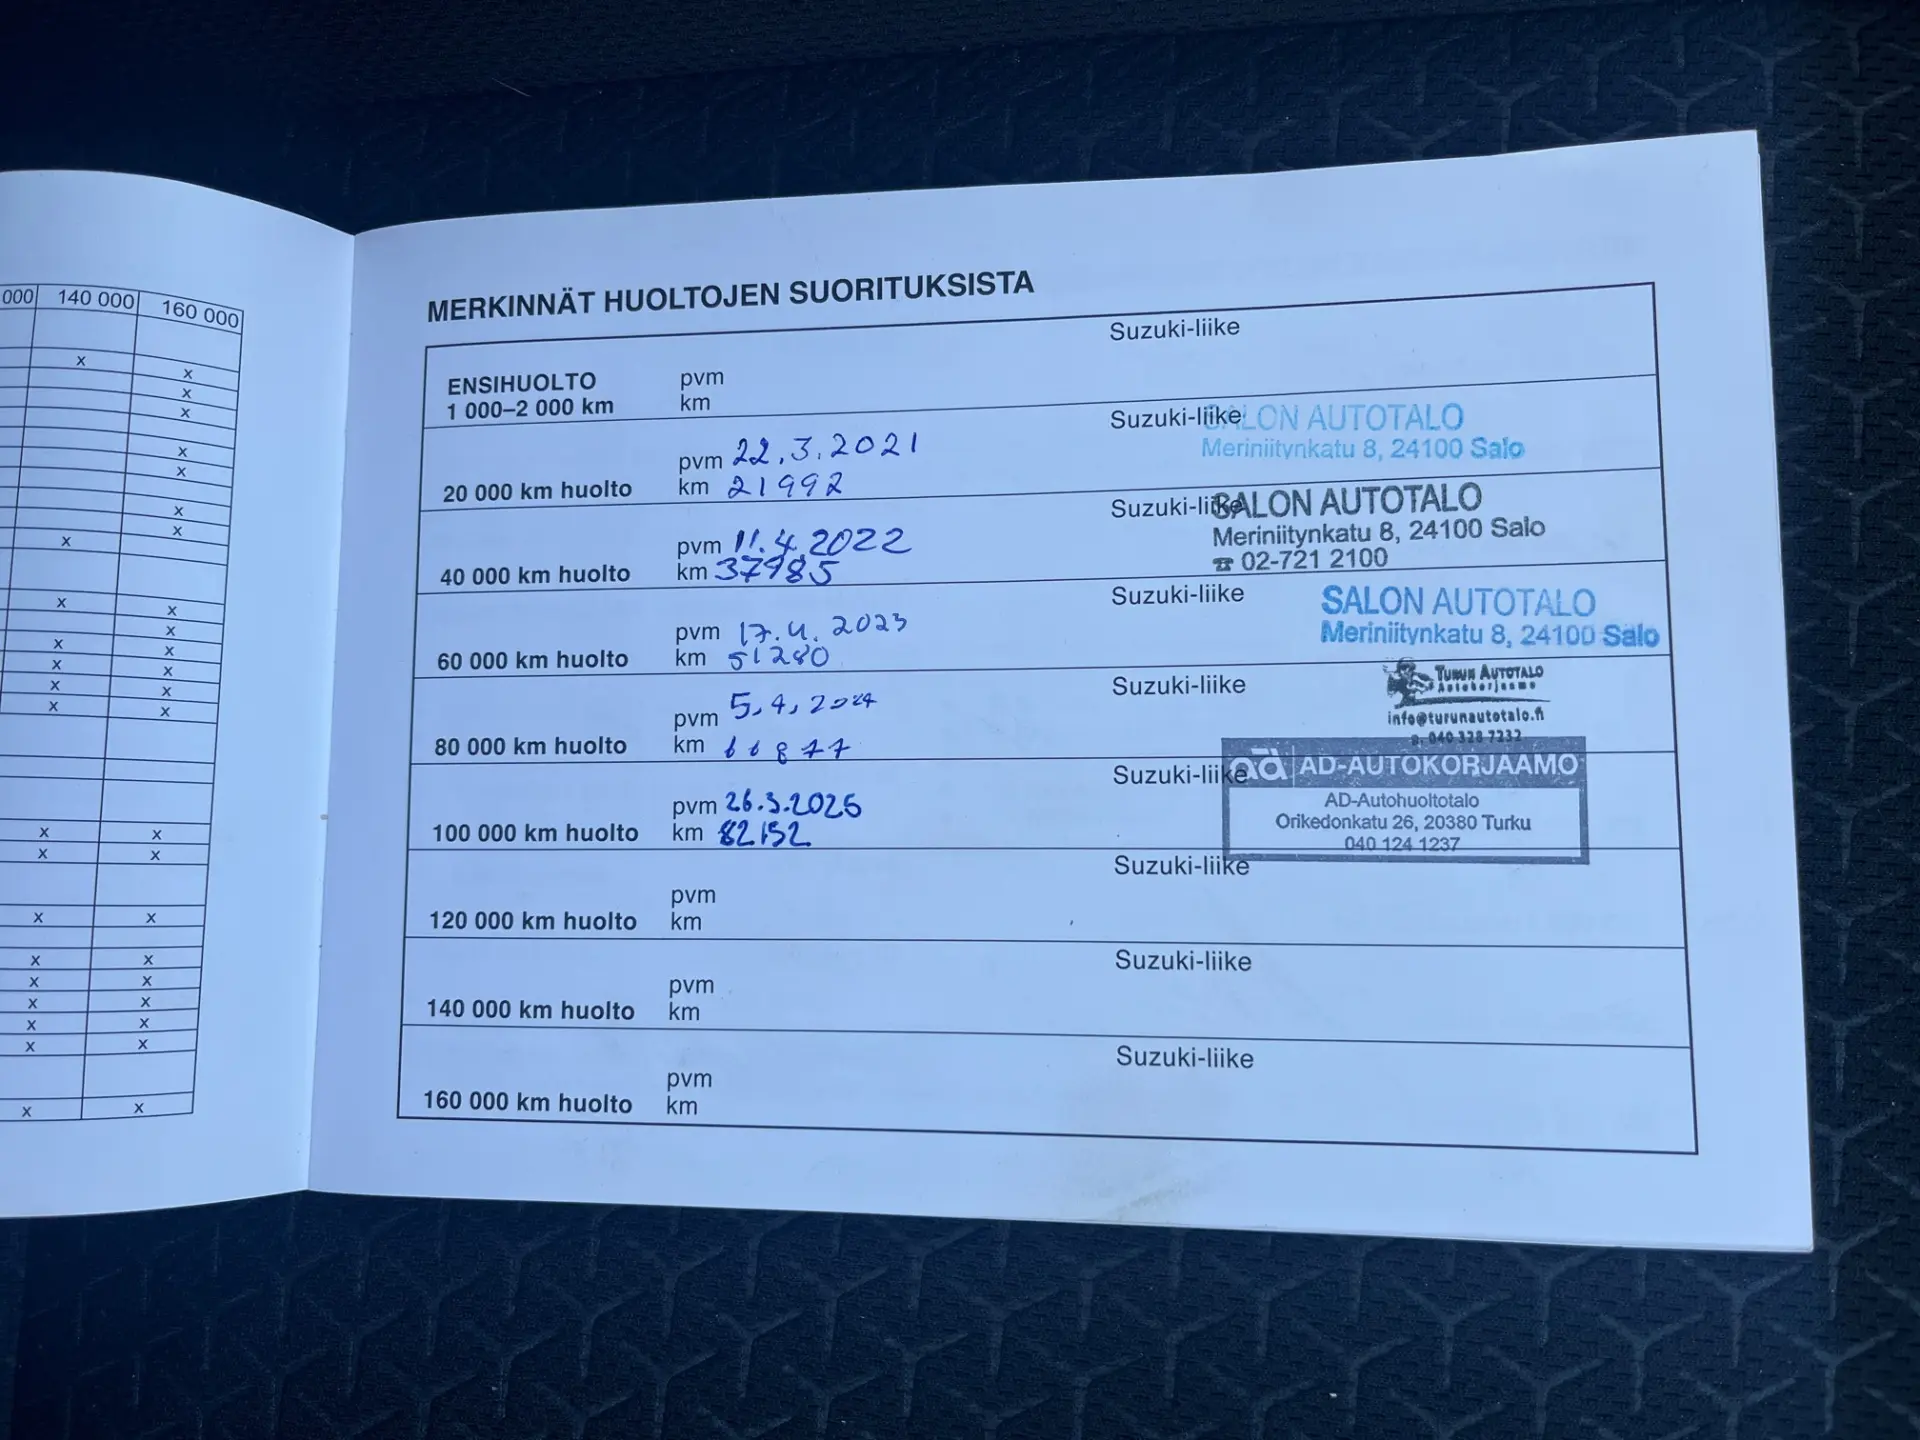 000 140 000 160 000
x
x
x
x
x
x
x
x
x
x x
x
x x
x x
x x
x x
x x
x x
x x
x x
x x
x x
x x
x x
x x
MERKINNÄT HUOLTOJEN SUORITUKSISTA
Suzuki-liike
ENSIHUOLTO pvm
1 000–2 000 km km
Suzuki-liike SALON AUTOTALO
Meriniitynkatu 8, 24100 Salo
pvm 22.3.2021
20 000 km huolto km 21992
Suzuki-liike SALON AUTOTALO
Meriniitynkatu 8, 24100 Salo
☎ 02-721 2100
pvm 11.4.2022
40 000 km huolto km 37985
Suzuki-liike SALON AUTOTALO
Meriniitynkatu 8, 24100 Salo
pvm 17.4.2023
60 000 km huolto km 51280
Suzuki-liike TURUN AUTOTALO
Autokorjaamo
info@turunautotalo.fi
p. 040 328 7232
pvm 5.4.2024
80 000 km huolto km 66877
Suzuki-liike ad AD-AUTOKORJAAMO
AD-Autohuoltotalo
Orikedonkatu 26, 20380 Turku
040 124 1237
pvm 26.3.2025
100 000 km huolto km 82152
Suzuki-liike
pvm
120 000 km huolto km
Suzuki-liike
pvm
140 000 km huolto km
Suzuki-liike
pvm
160 000 km huolto km